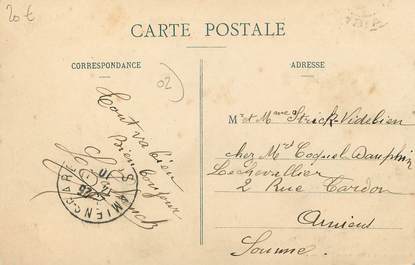 20 €
CARTE POSTALE
CORRESPONDANCE
ADRESSE
02
Tout va bien
Bien bonjour
M. et Mme Strick-Videlien
chez Mr Coquel Dauphin
Lechevallier
2 Rue Cardon
Amiens
Somme.
AMIENS-GARE